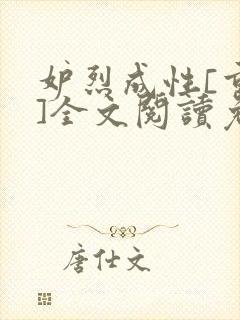 妒烈成性[重
]全文閱讀免
唐仕文